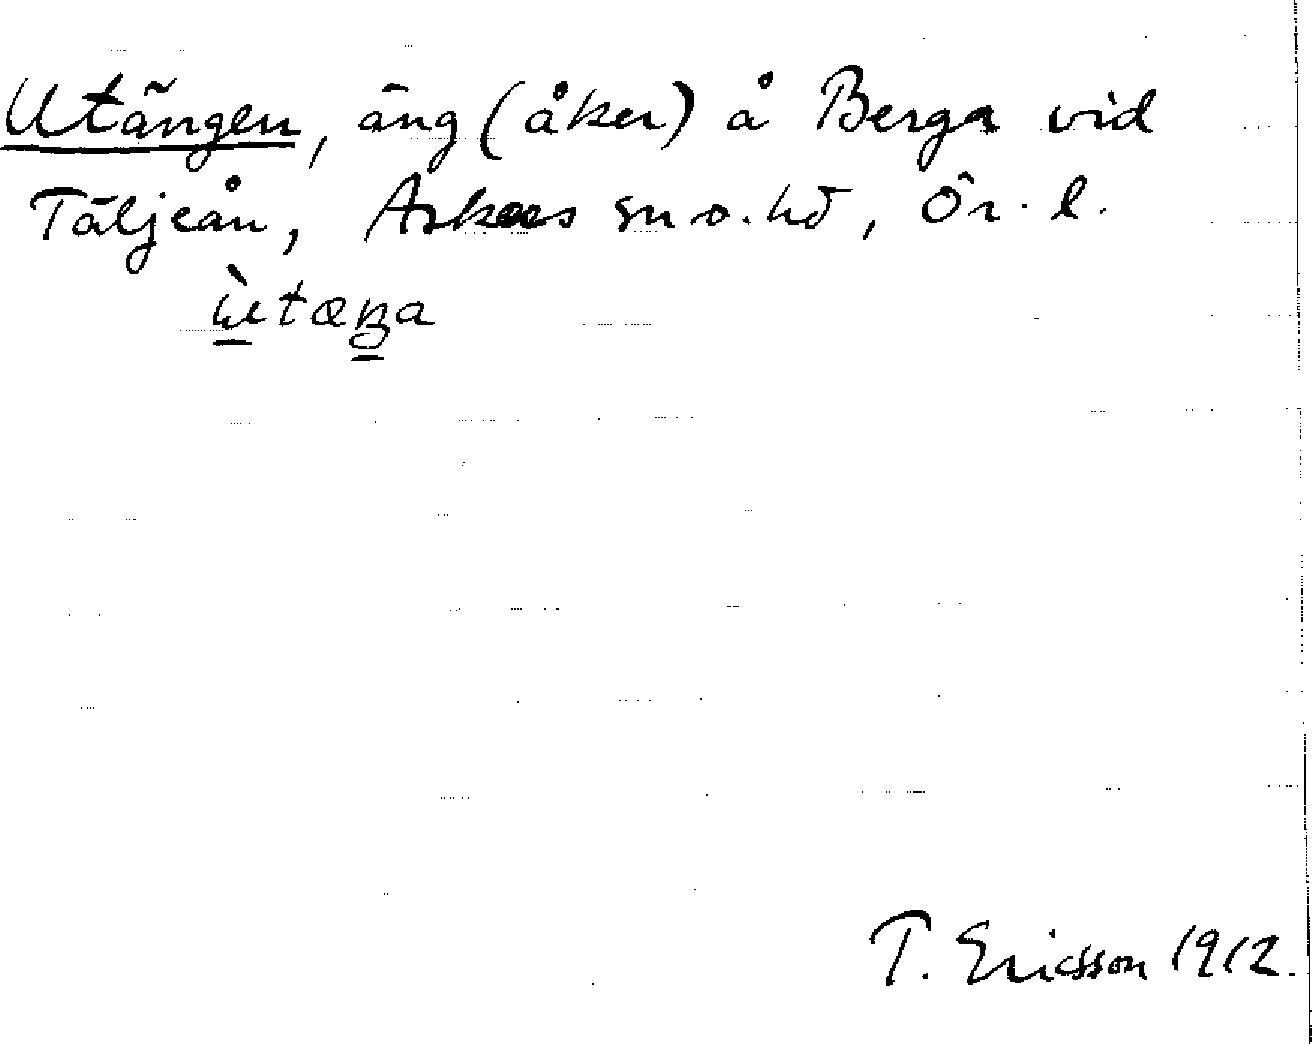 Utängen, äng (åker) å Berga vid
Täljeån, Askers sn o. hd, Ör. l.
T. Ericsson 1912.